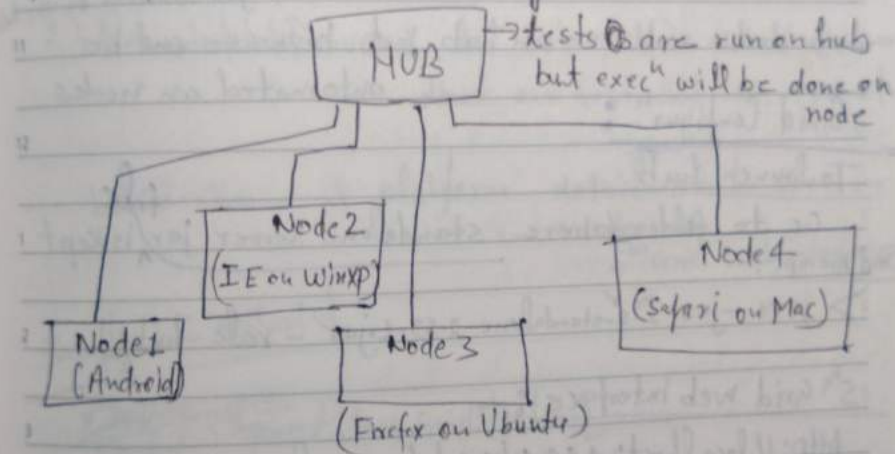 HUB
→ tests are run on hub
but execⁿ will be done on
node
Node2
(IE on WinXP)
Node4
(Safari on Mac)
Node1
(Android)
Node3
(Firefox on Ubuntu)
11
12
1
2
3